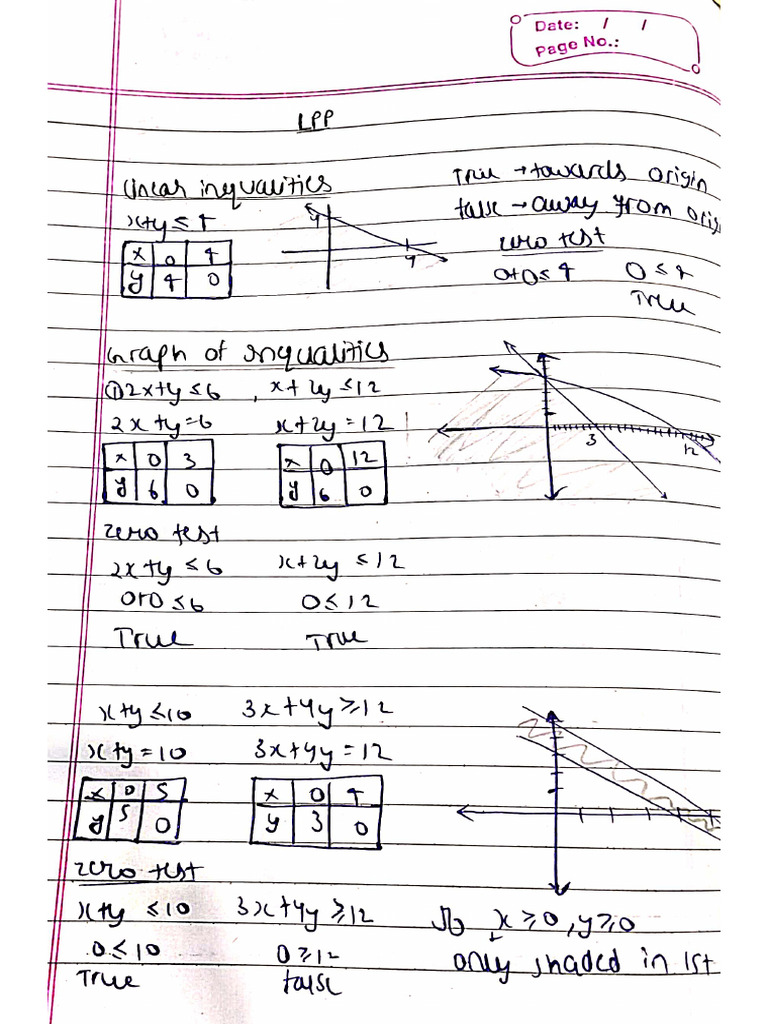 Date: / /
Page No.:
LPP
Linear inequalities
True → towards origin
x+y ≤ 4
false → away from orig
x 0 4
y 4 0
4
4
zero test
0+0 ≤ 4 0 ≤ 4
True
Graph of inqualitics
① 2x+y ≤ 6 , x + 2y ≤ 12
2x + y = 6 x + 2y = 12
x 0 3
y 6 0
x 0 12
y 6 0
3
12
zero test
2x+y ≤ 6 x+2y ≤ 12
0+0 ≤ 6 0 ≤ 12
True True
x+y ≤ 10 3x+4y ≥ 12
x+y = 10 3x+4y = 12
x 0 5
y 5 0
x 0 4
y 3 0
zero test
x+y ≤ 10 3x+4y ≥ 12
0 ≤ 10 0 ≥ 12
True false
x ≥ 0 , y ≥ 0
only shaded in 1st